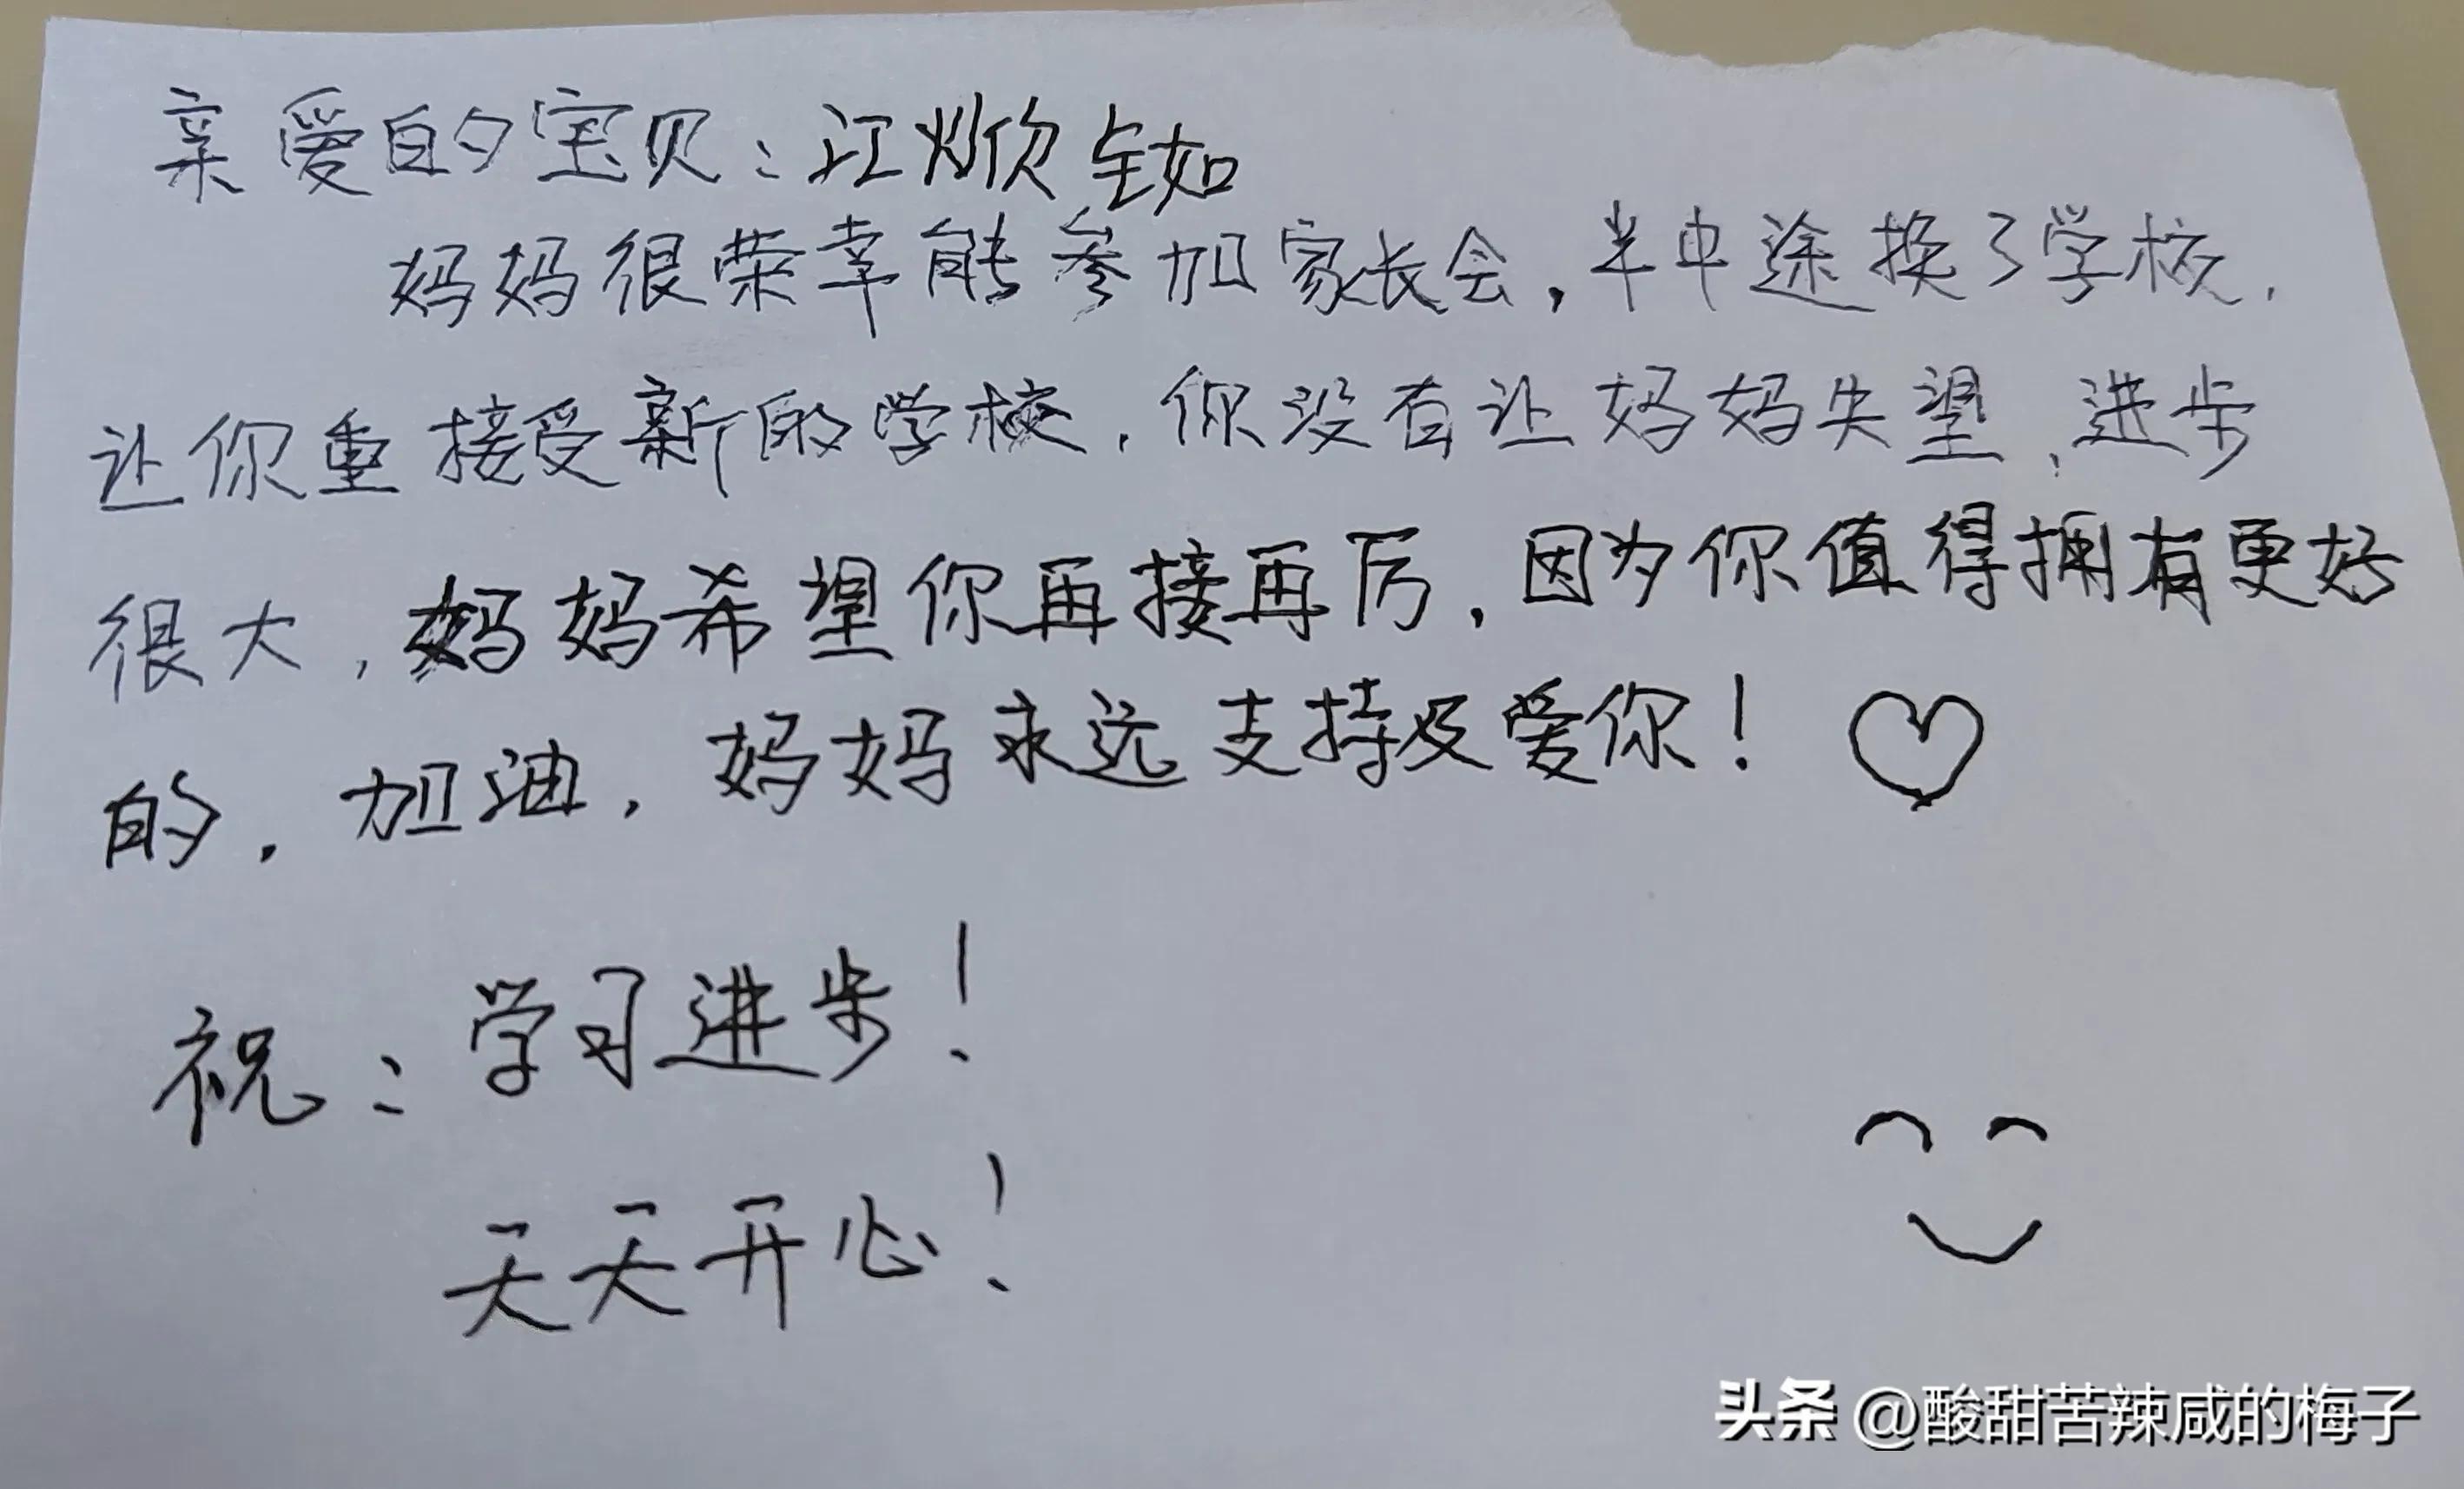 亲爱的宝贝：江焮
妈妈很荣幸能参加家长会，半中途换了学校，
让你重接受新的学校，你没有让妈妈失望，进步
很大，妈妈希望你再接再厉，因为你值得拥有更好
的，加油，妈妈永远支持及爱你！
祝：学习进步！
天天开心！
头条 @酸甜苦辣咸的梅子